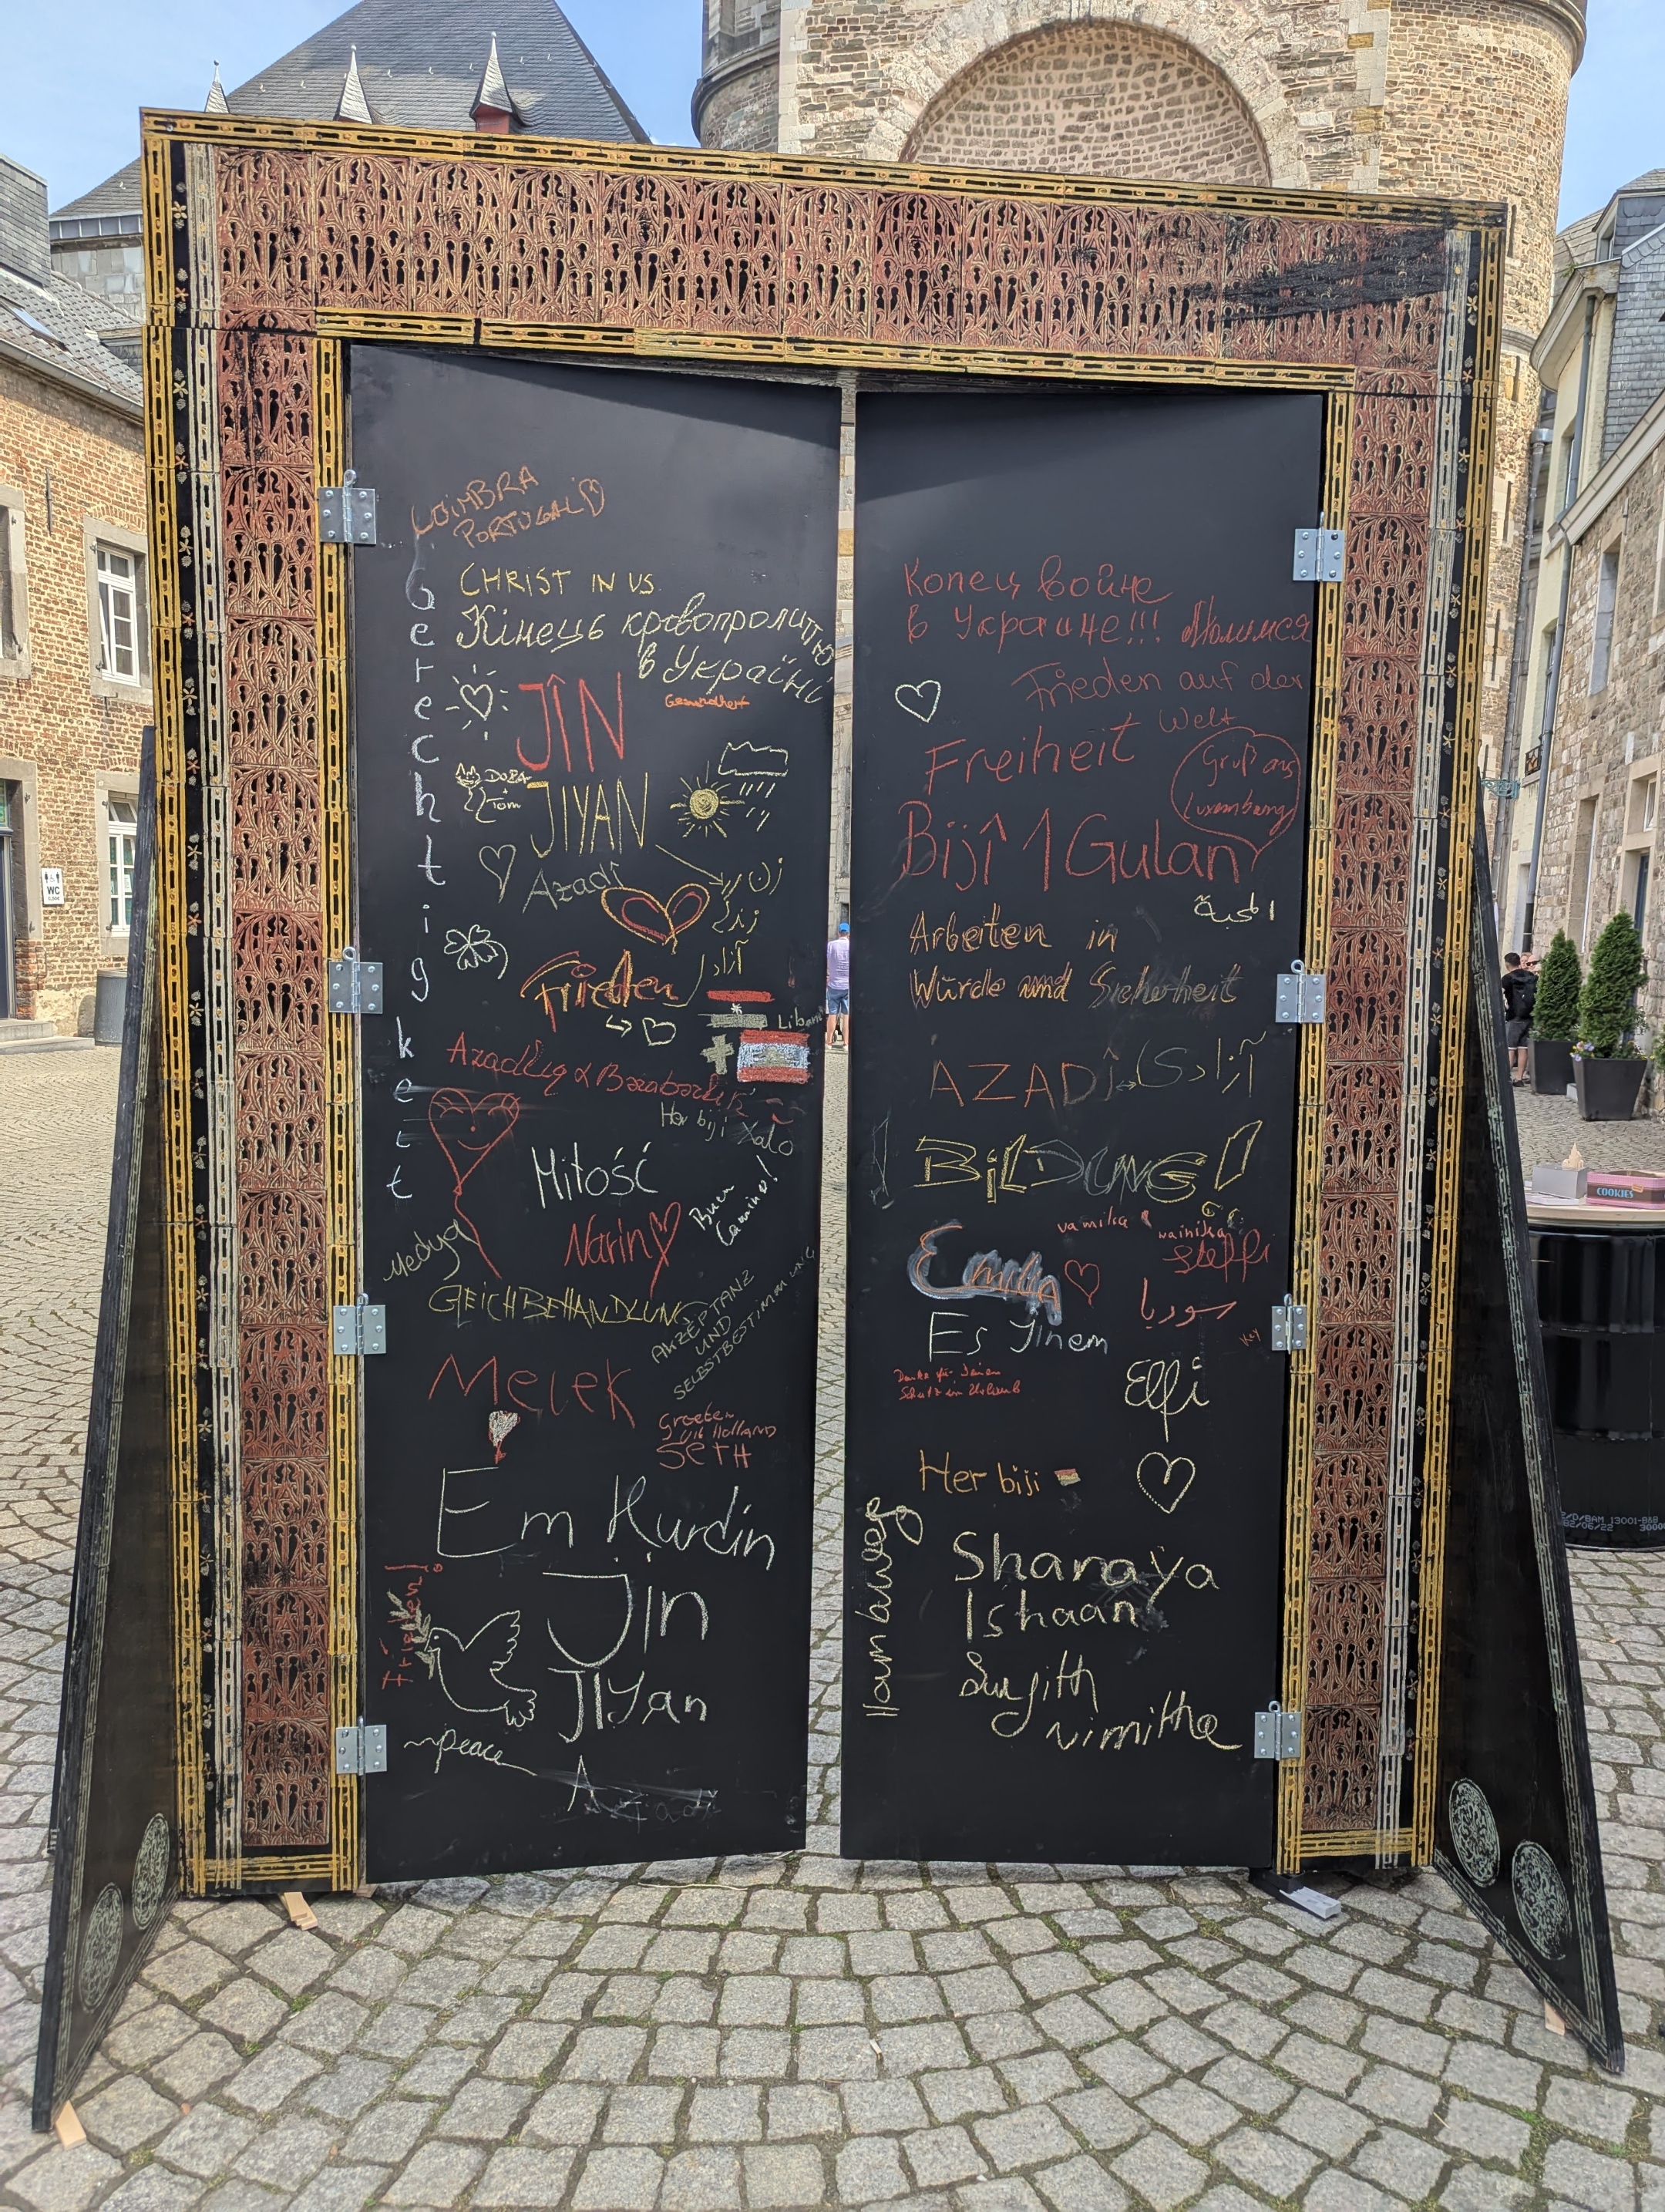 COIMBRA
PORTUGAL
CHRIST IN US.
Gerechtigkett
Кінець кровопролиттю
в Україні
JÎN
Gesundheit
DOBA
+
Tom
JIYAN
Azadî
زن
آزادی
Frieden
Libanon
Azadlıq &
Her biji Xalo
Miłość
Buen
Camino!
Narin
Medya
GLEICHBEHANDLUNG
AKZEPTANZ
UND
SELBSTBESTIMMUNG
Melek
Groeten
uit HOLLAND
SETH
Em Kurdin
Jin
JIYan
Frieden!
~peace
Azadi
Конец войне
в Украине!!! Молимся
Frieden auf der
Welt
Freiheit
Gruß aus
Luxemburg
Bijî 1 Gulan
Arbeiten in
Würde und Sicherheit
AZADî آزادی
BILDUNG!
vamika
wainika
Steffi
Emilia
سوريا
Es Jinem
Danke für deinen
Schutz im Urlaub
Elfi
Her biji
Hamburg
Shanaya
Ishaan
Sujith
Nimitha
WC
COOKIES
/D/BAM 13001-B&B